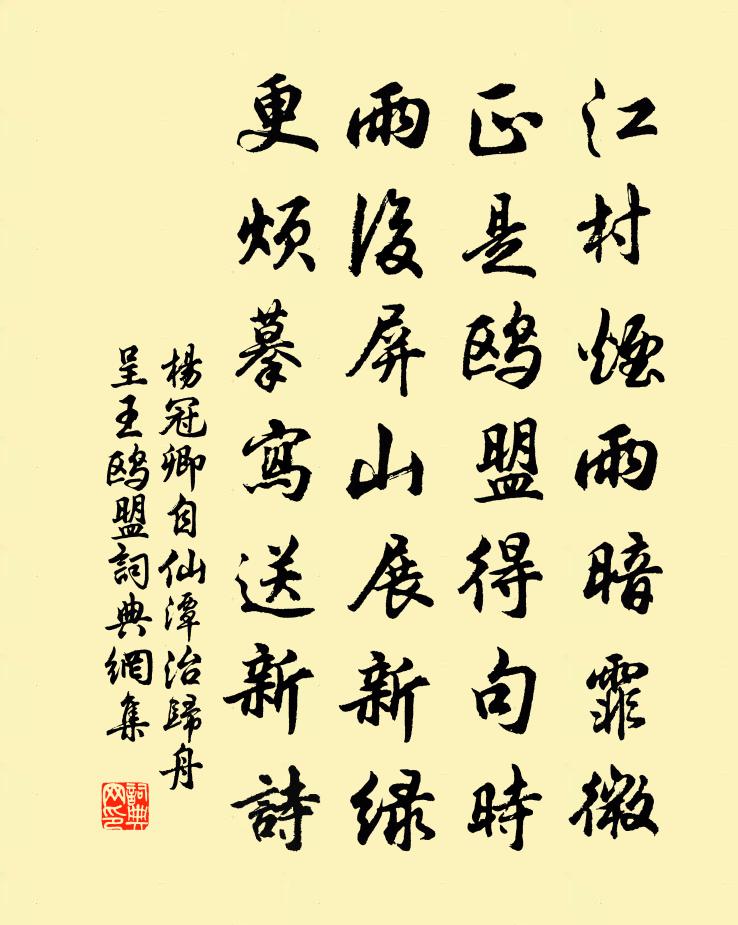 江村煙雨暗霏微
正是鷗盟得句時
雨後屏山展新緑
更煩摹寫送新詩
楊冠卿自仙潭治歸舟
呈王鷗盟詞典網集
詞典
网印